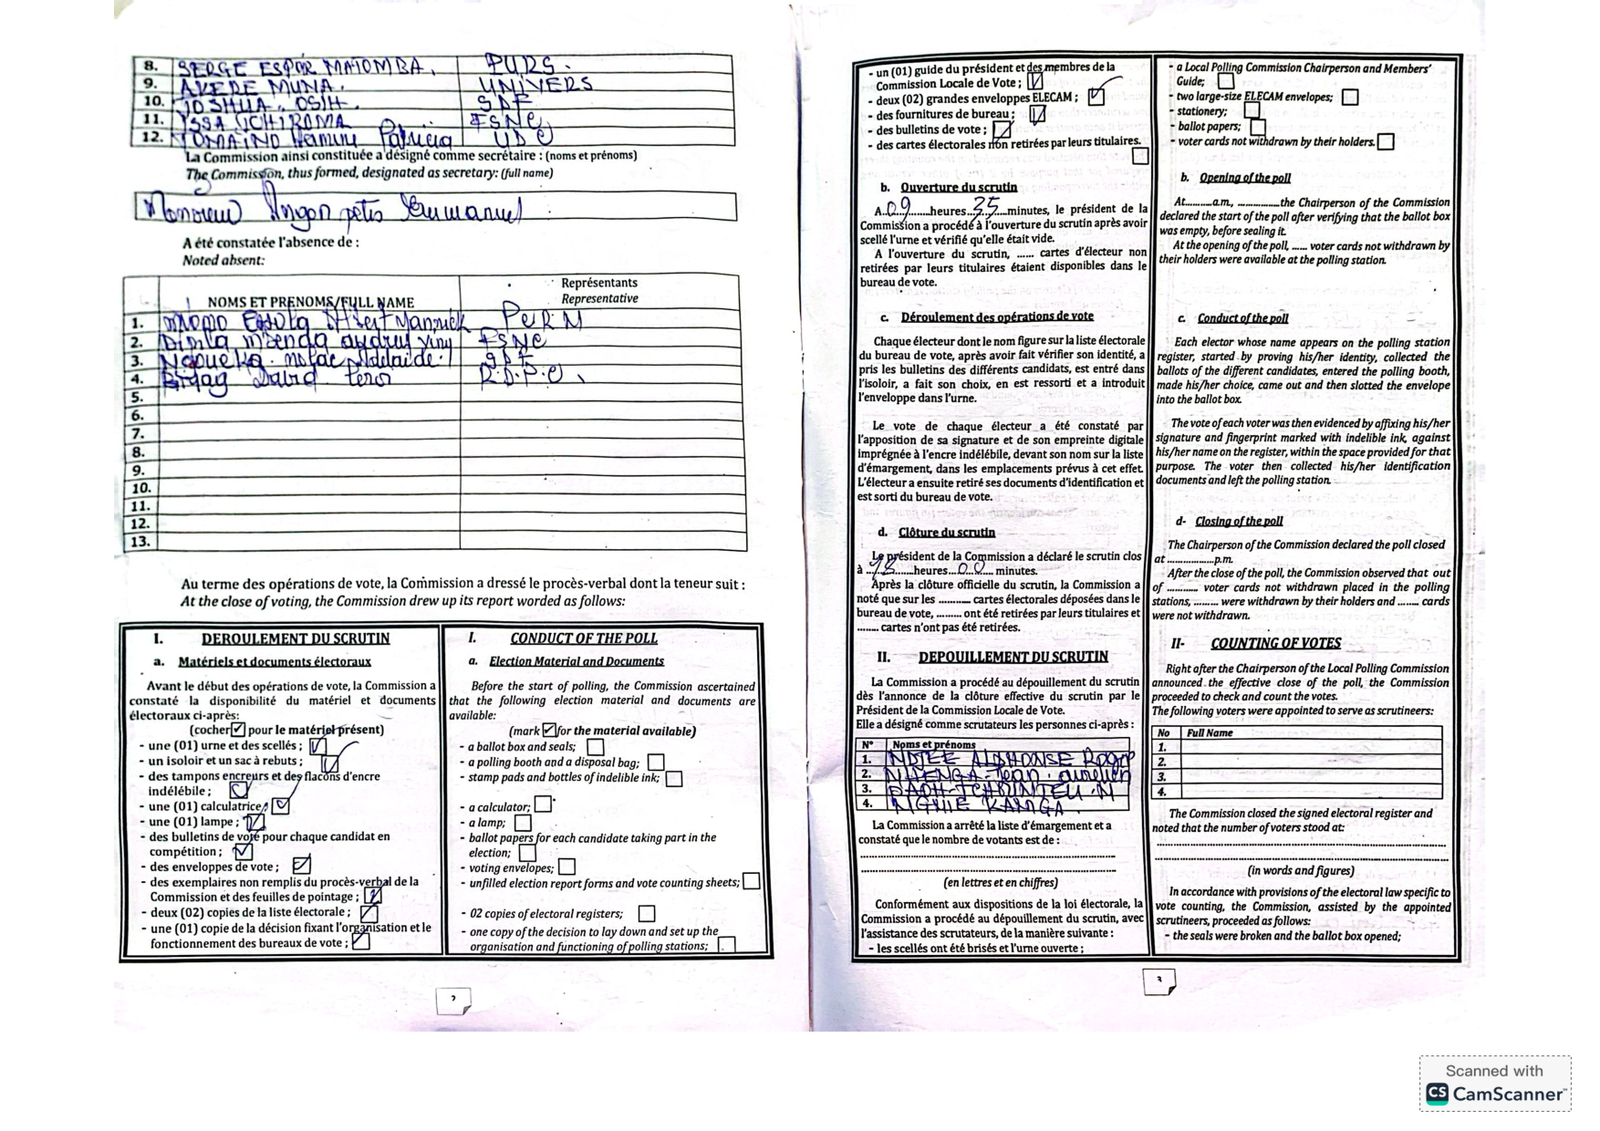 8. SERGE ESPOR MATOMBA. PURS.
9. AKERE MUNA. UNIVERS
10. JOSHUA. OSIH. SDF
11. ISSA TCHIROMA FSNC
12. TOMAINO Hamini Patricia UDC
La Commission ainsi constituée a désigné comme secrétaire : (noms et prénoms)
The Commission, thus formed, designated as secretary: (full name)
Monsieur Emmanuel
A été constatée l'absence de :
Noted absent:
NOMS ET PRENOMS/FULL NAME
Représentants
Representative
1. Yannick PCRN
2. FSNC
3. Adelaide SDF
4. David R.D.P.C.
5.
6.
7.
8.
9.
10.
11.
12.
13.
Au terme des opérations de vote, la Commission a dressé le procès-verbal dont la teneur suit :
At the close of voting, the Commission drew up its report worded as follows:
I. DEROULEMENT DU SCRUTIN
a. Matériels et documents électoraux
Avant le début des opérations de vote, la Commission a
constaté la disponibilité du matériel et documents
électoraux ci-après:
(cocher ☑ pour le matériel présent)
- une (01) urne et des scellés ;
- un isoloir et un sac à rebuts ;
- des tampons encreurs et des flacons d'encre
indélébile ;
- une (01) calculatrice;
- une (01) lampe ;
- des bulletins de vote pour chaque candidat en
compétition ;
- des enveloppes de vote ;
- des exemplaires non remplis du procès-verbal de la
Commission et des feuilles de pointage ;
- deux (02) copies de la liste électorale ;
- une (01) copie de la décision fixant l'organisation et le
fonctionnement des bureaux de vote ;
I. CONDUCT OF THE POLL
a. Election Material and Documents
Before the start of polling, the Commission ascertained
that the following election material and documents are
available:
(mark ☑ for the material available)
- a ballot box and seals;
- a polling booth and a disposal bag;
- stamp pads and bottles of indelible ink;
- a calculator;
- a lamp;
- ballot papers for each candidate taking part in the
election;
- voting envelopes;
- unfilled election report forms and vote counting sheets;
- 02 copies of electoral registers;
- one copy of the decision to lay down and set up the
organisation and functioning of polling stations;
2
- un (01) guide du président et des membres de la
Commission Locale de Vote ;
- deux (02) grandes enveloppes ELECAM ;
- des fournitures de bureau ;
- des bulletins de vote ;
- des cartes électorales non retirées par leurs titulaires.
b. Ouverture du scrutin
A 09 heures 35 minutes, le président de la
Commission a procédé à l'ouverture du scrutin après avoir
scellé l'urne et vérifié qu'elle était vide.
A l'ouverture du scrutin, ...... cartes d'électeur non
retirées par leurs titulaires étaient disponibles dans le
bureau de vote.
c. Déroulement des opérations de vote
Chaque électeur dont le nom figure sur la liste électorale
du bureau de vote, après avoir fait vérifier son identité, a
pris les bulletins des différents candidats, est entré dans
l'isoloir, a fait son choix, en est ressorti et a introduit
l'enveloppe dans l'urne.
Le vote de chaque électeur a été constaté par
l'apposition de sa signature et de son empreinte digitale
imprégnée à l'encre indélébile, devant son nom sur la liste
d'émargement, dans les emplacements prévus à cet effet.
L'électeur a ensuite retiré ses documents d'identification et
est sorti du bureau de vote.
d. Clôture du scrutin
Le président de la Commission a déclaré le scrutin clos
à 18 heures 00 minutes.
Après la clôture officielle du scrutin, la Commission a
noté que sur les .......... cartes électorales déposées dans le
bureau de vote, ........ ont été retirées par leurs titulaires et
....... cartes n'ont pas été retirées.
II. DEPOUILLEMENT DU SCRUTIN
La Commission a procédé au dépouillement du scrutin
dès l'annonce de la clôture effective du scrutin par le
Président de la Commission Locale de Vote.
Elle a désigné comme scrutateurs les personnes ci-après :
N° Noms et prénoms
1. NDJEE ALPHONSE Roger
2. Jean aurelien
3.
4. KAMGA
La Commission a arrêté la liste d'émargement et a
constaté que le nombre de votants est de :
(en lettres et en chiffres)
Conformément aux dispositions de la loi électorale, la
Commission a procédé au dépouillement du scrutin, avec
l'assistance des scrutateurs, de la manière suivante :
- les scellés ont été brisés et l'urne ouverte ;
- a Local Polling Commission Chairperson and Members'
Guide;
- two large-size ELECAM envelopes;
- stationery;
- ballot papers;
- voter cards not withdrawn by their holders.
b. Opening of the poll
At.........a.m, ..............the Chairperson of the Commission
declared the start of the poll after verifying that the ballot box
was empty, before sealing it.
At the opening of the poll, ...... voter cards not withdrawn by
their holders were available at the polling station.
c. Conduct of the poll
Each elector whose name appears on the polling station
register, started by proving his/her identity, collected the
ballots of the different candidates, entered the polling booth,
made his/her choice, came out and then slotted the envelope
into the ballot box.
The vote of each voter was then evidenced by affixing his/her
signature and fingerprint marked with indelible ink, against
his/her name on the register, within the space provided for that
purpose. The voter then collected his/her identification
documents and left the polling station.
d- Closing of the poll
The Chairperson of the Commission declared the poll closed
at ................p.m.
After the close of the poll, the Commission observed that out
of .......... voter cards not withdrawn placed in the polling
stations, ........ were withdrawn by their holders and ....... cards
were not withdrawn.
II- COUNTING OF VOTES
Right after the Chairperson of the Local Polling Commission
announced the effective close of the poll, the Commission
proceeded to check and count the votes.
The following voters were appointed to serve as scrutineers:
No Full Name
1.
2.
3.
4.
The Commission closed the signed electoral register and
noted that the number of voters stood at:
(in words and figures)
In accordance with provisions of the electoral law specific to
vote counting, the Commission, assisted by the appointed
scrutineers, proceeded as follows:
- the seals were broken and the ballot box opened;
3
Scanned with
CS CamScanner